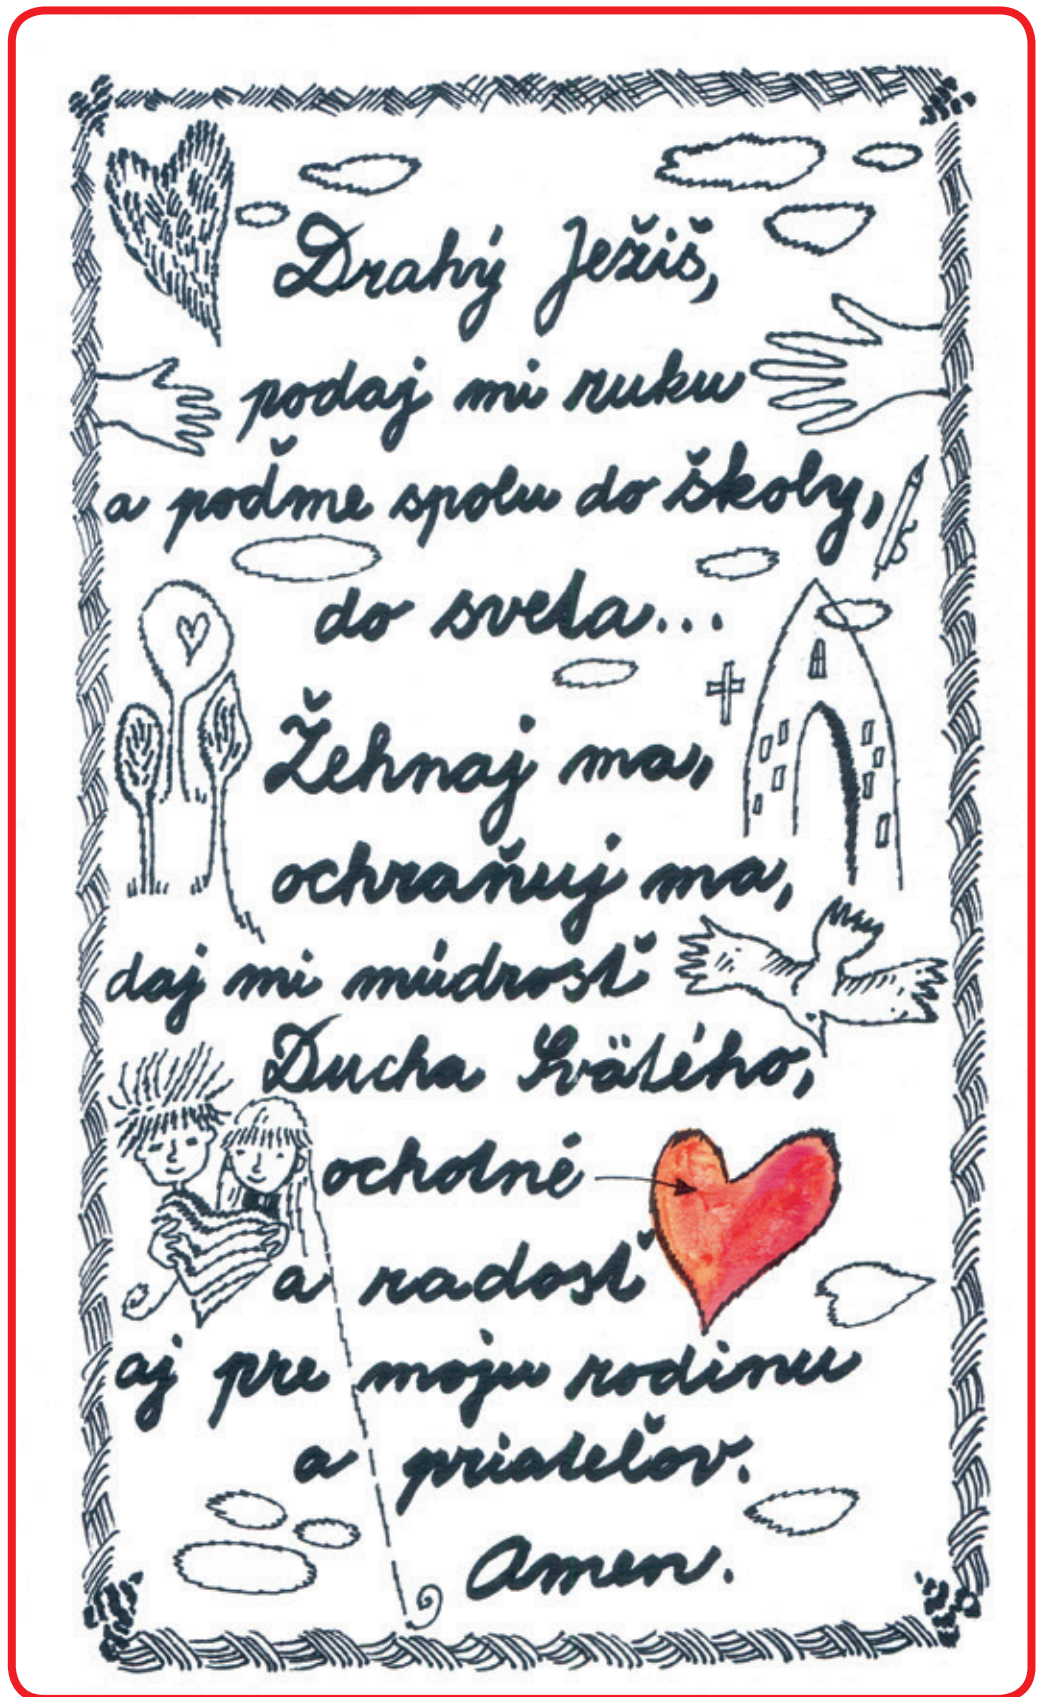 Drahý Ježiš,
podaj mi ruku
a poďme spolu do školy,
do sveta...
Žehnaj ma,
ochraňuj ma,
daj mi múdrosť
Ducha Svätého,
ochotné
a radosť
aj pre moju rodinu
a priateľov.
Amen.